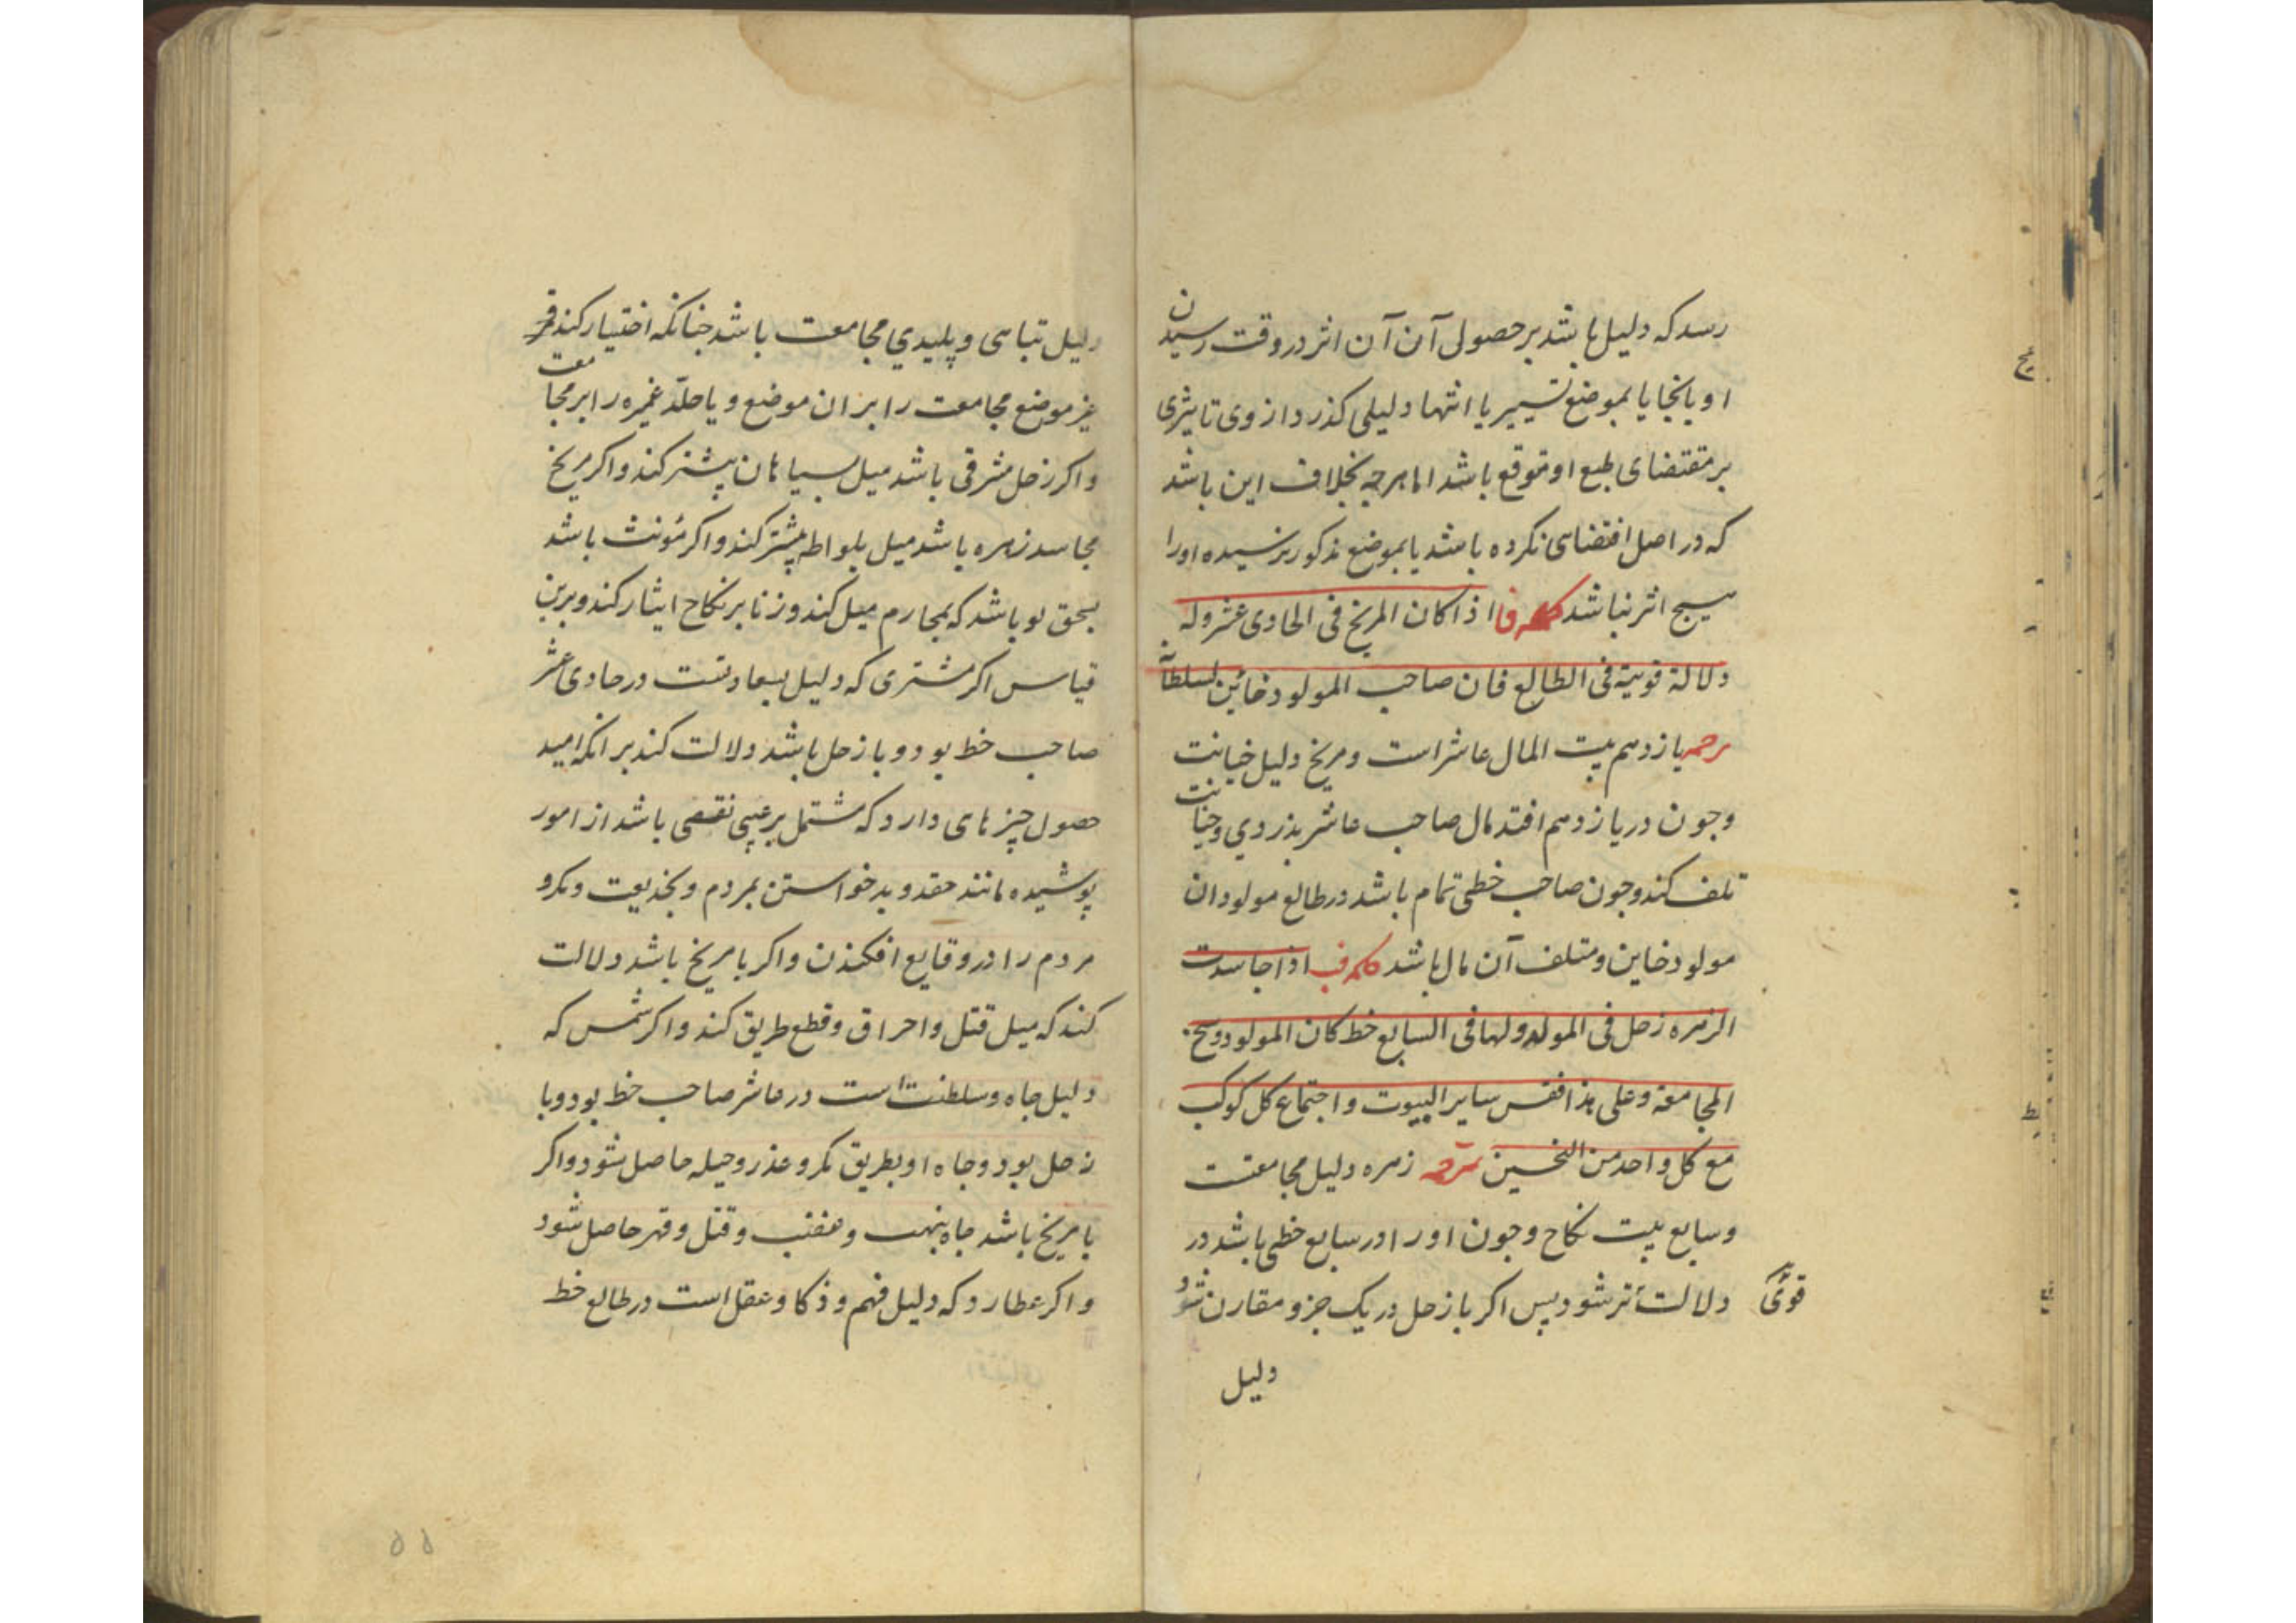 رسد که دلیل باشد بر حصول آن آن اثر در وقت رسیدن
او بانجا یا بموضع تسییر یا انتها دلیلی کذرد از وی تاثیری
بر مقتضای طبع او متوقع باشد اما هرچه بخلاف این باشد
که در اصل اقتضای نکرده باشد یا بموضع مذکور نرسیده او را
هیچ اثر نباشد کلمه فا اذا کان المریخ فی الحادی عشر وله
دلالة قویة فی الطالع فان صاحب المولود خائن لسلطانه
ترجمه یازدهم بیت المال عاشر است و مریخ دلیل خیانت
وجون در یازدهم افتد مال صاحب عاشر بدزدی وخیانت
تلف کند وجون صاحب خطی تمام باشد در طالع مولود ان
مولود خاین ومتلف آن مال باشد کلمه فب اذا جاسدت
الزهره زحل فی المولد ولها فی السابع خط کان المولود وسخ
المجامعة وعلی هذا فقس سایر البیوت و اجتماع کل کوکب
مع کل واحد من النحسین ترجمه زهره دلیل مجامعتست
وسابع بیت نکاح وجون او را در سابع خطی باشد در
دلالت تر شود پس اکر با زحل در یک جزو مقارن شود
قوی
دلیل
دلیل تباهی و پلیدی مجامعت باشد جنانکه اختیار کند
غیر موضع مجامعت را بر ان موضع و یا جلد عمیره را بر مجامعت
واکر زحل مشرقی باشد میل بسیاهان بیشتر کند واکر مریخ
مجاسد زهره باشد میل بلواطه بیشتر کند واکر مؤنث باشد
بحق لو باشد که بمحارم میل کند وزنا بر نکاح ایثار کند وبرین
قیاس اکر مشتری که دلیل سعادتست در حادی عشر
صاحب خط بود و با زحل باشد دلالت کند بر انکه امید
حصول چیزهای دارد که مشتمل بر عیبی نقصی باشد از امور
پوشیده مانند حقد و بد خواستن بمردم و بخدیعت ومکر و
مردم را در وقایع افکندن واکر با مریخ باشد دلالت
کند که میل قتل و احراق وقطع طریق کند واکر شمس که
دلیل جاه وسلطنت است در عاشر صاحب خط بود وبا
زحل بود وجاه او بطریق مکر وغدر وحیله حاصل شود واکر
با مریخ باشد جاه بنهب وغضب وقتل وقهر حاصل شود
واکر عطارد که دلیل فهم وذکا وعقل است در طالع خط
۵۵